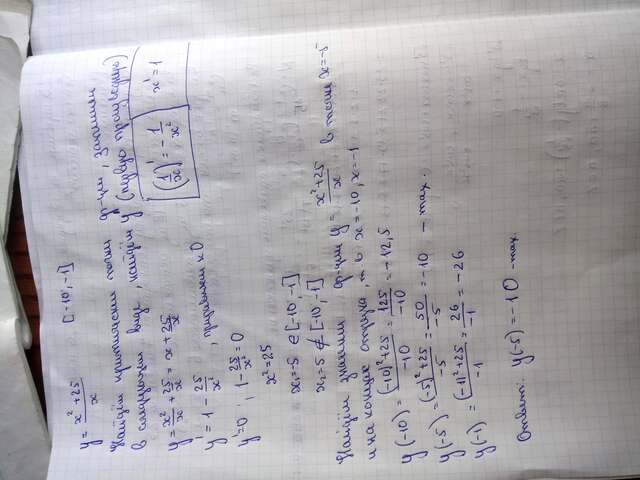 y = x²+25/x [-10; -1]
Найдём критические точки ф-ции, запишем
в следующем виде, найдём y' (первую производную)
y = x²/x + 25/x = x + 25/x
(1/x)' = -1/x² x' = 1
y' = 1 - 25/x², приравняем к 0
y' = 0; 1 - 25/x² = 0
x² = 25
x₁ = -5 ∈ [-10; -1]
x₂ = 5 ∉ [-10; -1]
Найдём значения ф-ции y = x²+25/x в точке x = -5
и на концах отрезка, т. в x = -10, x = -1
y(-10) = (-10)²+25/-10 = 125/-10 = -12,5
y(-5) = (-5)²+25/-5 = 50/-5 = -10 - max.
y(-1) = (-1)²+25/-1 = 26/-1 = -26
Ответ: y(-5) = -10 - max.